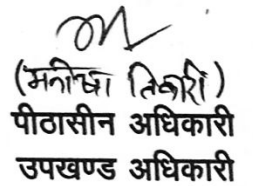 (मनीषा तिवारी)
पीठासीन अधिकारी
उपखण्ड अधिकारी